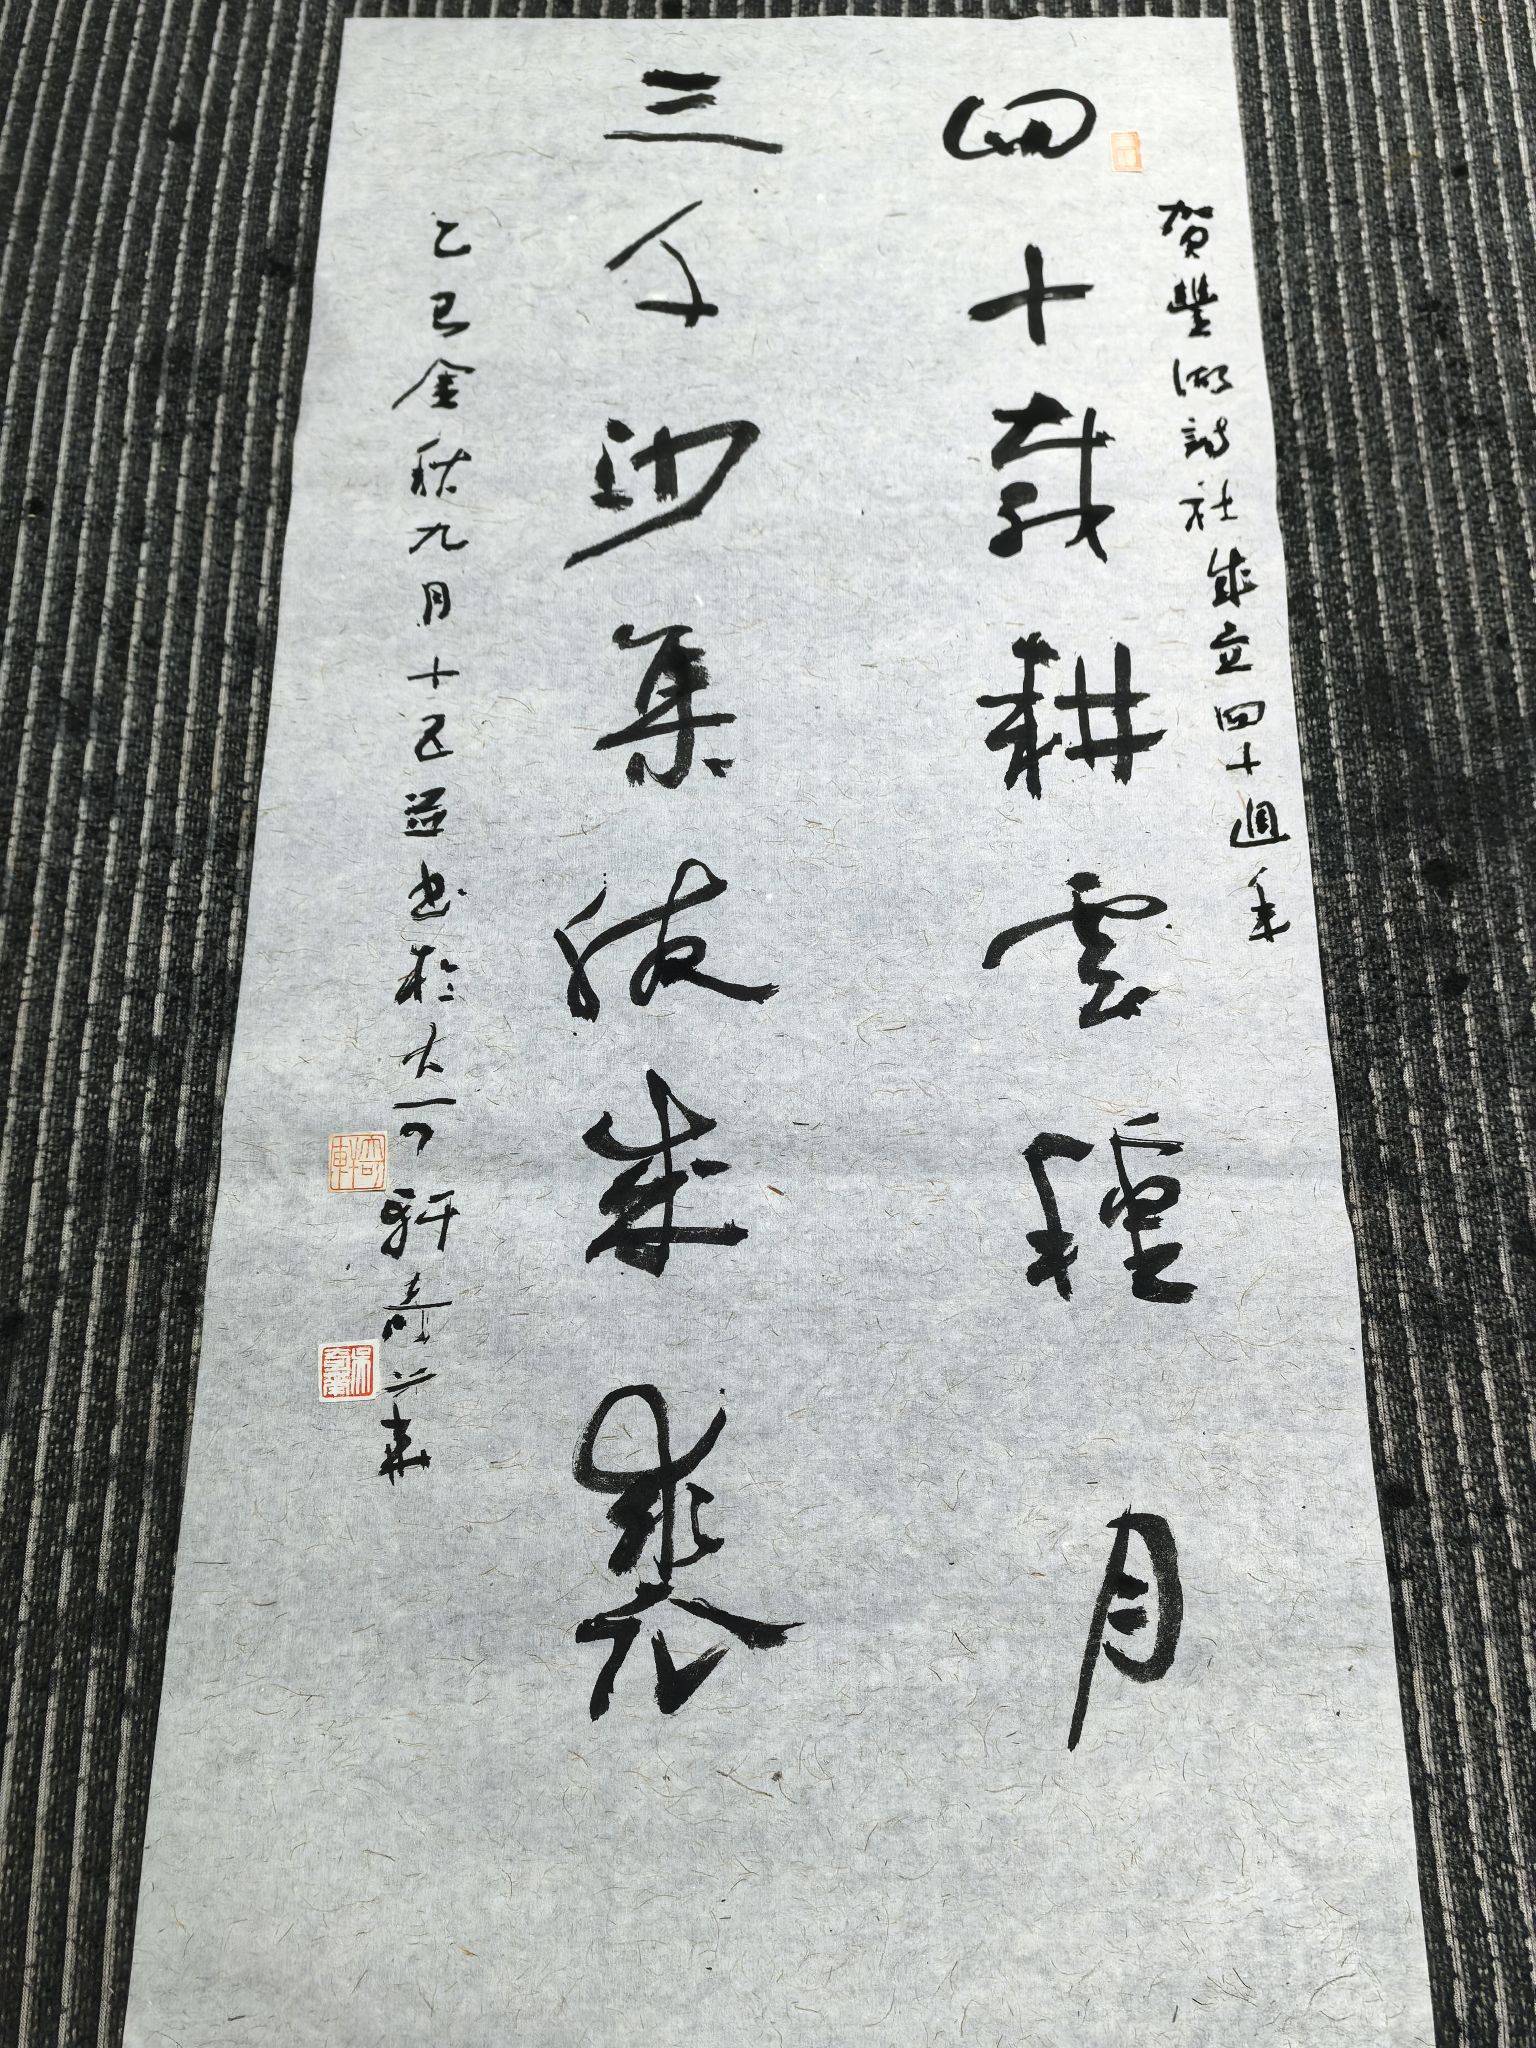 賀豐湖詩社成立四十週年
四十載耕雲種月
三千沙集腋成裘
乙巳金秋九月十五並書於大可軒奇華